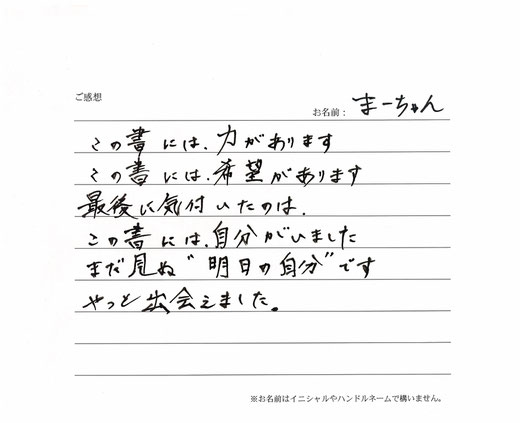 ご感想
お名前: まーちゃん
この書には、力があります
この書には、希望があります
最後に気付いたのは、
この書には、自分がいました
まだ見ぬ"明日の自分"です
やっと出会えました。
※お名前はイニシャルやハンドルネームで構いません。